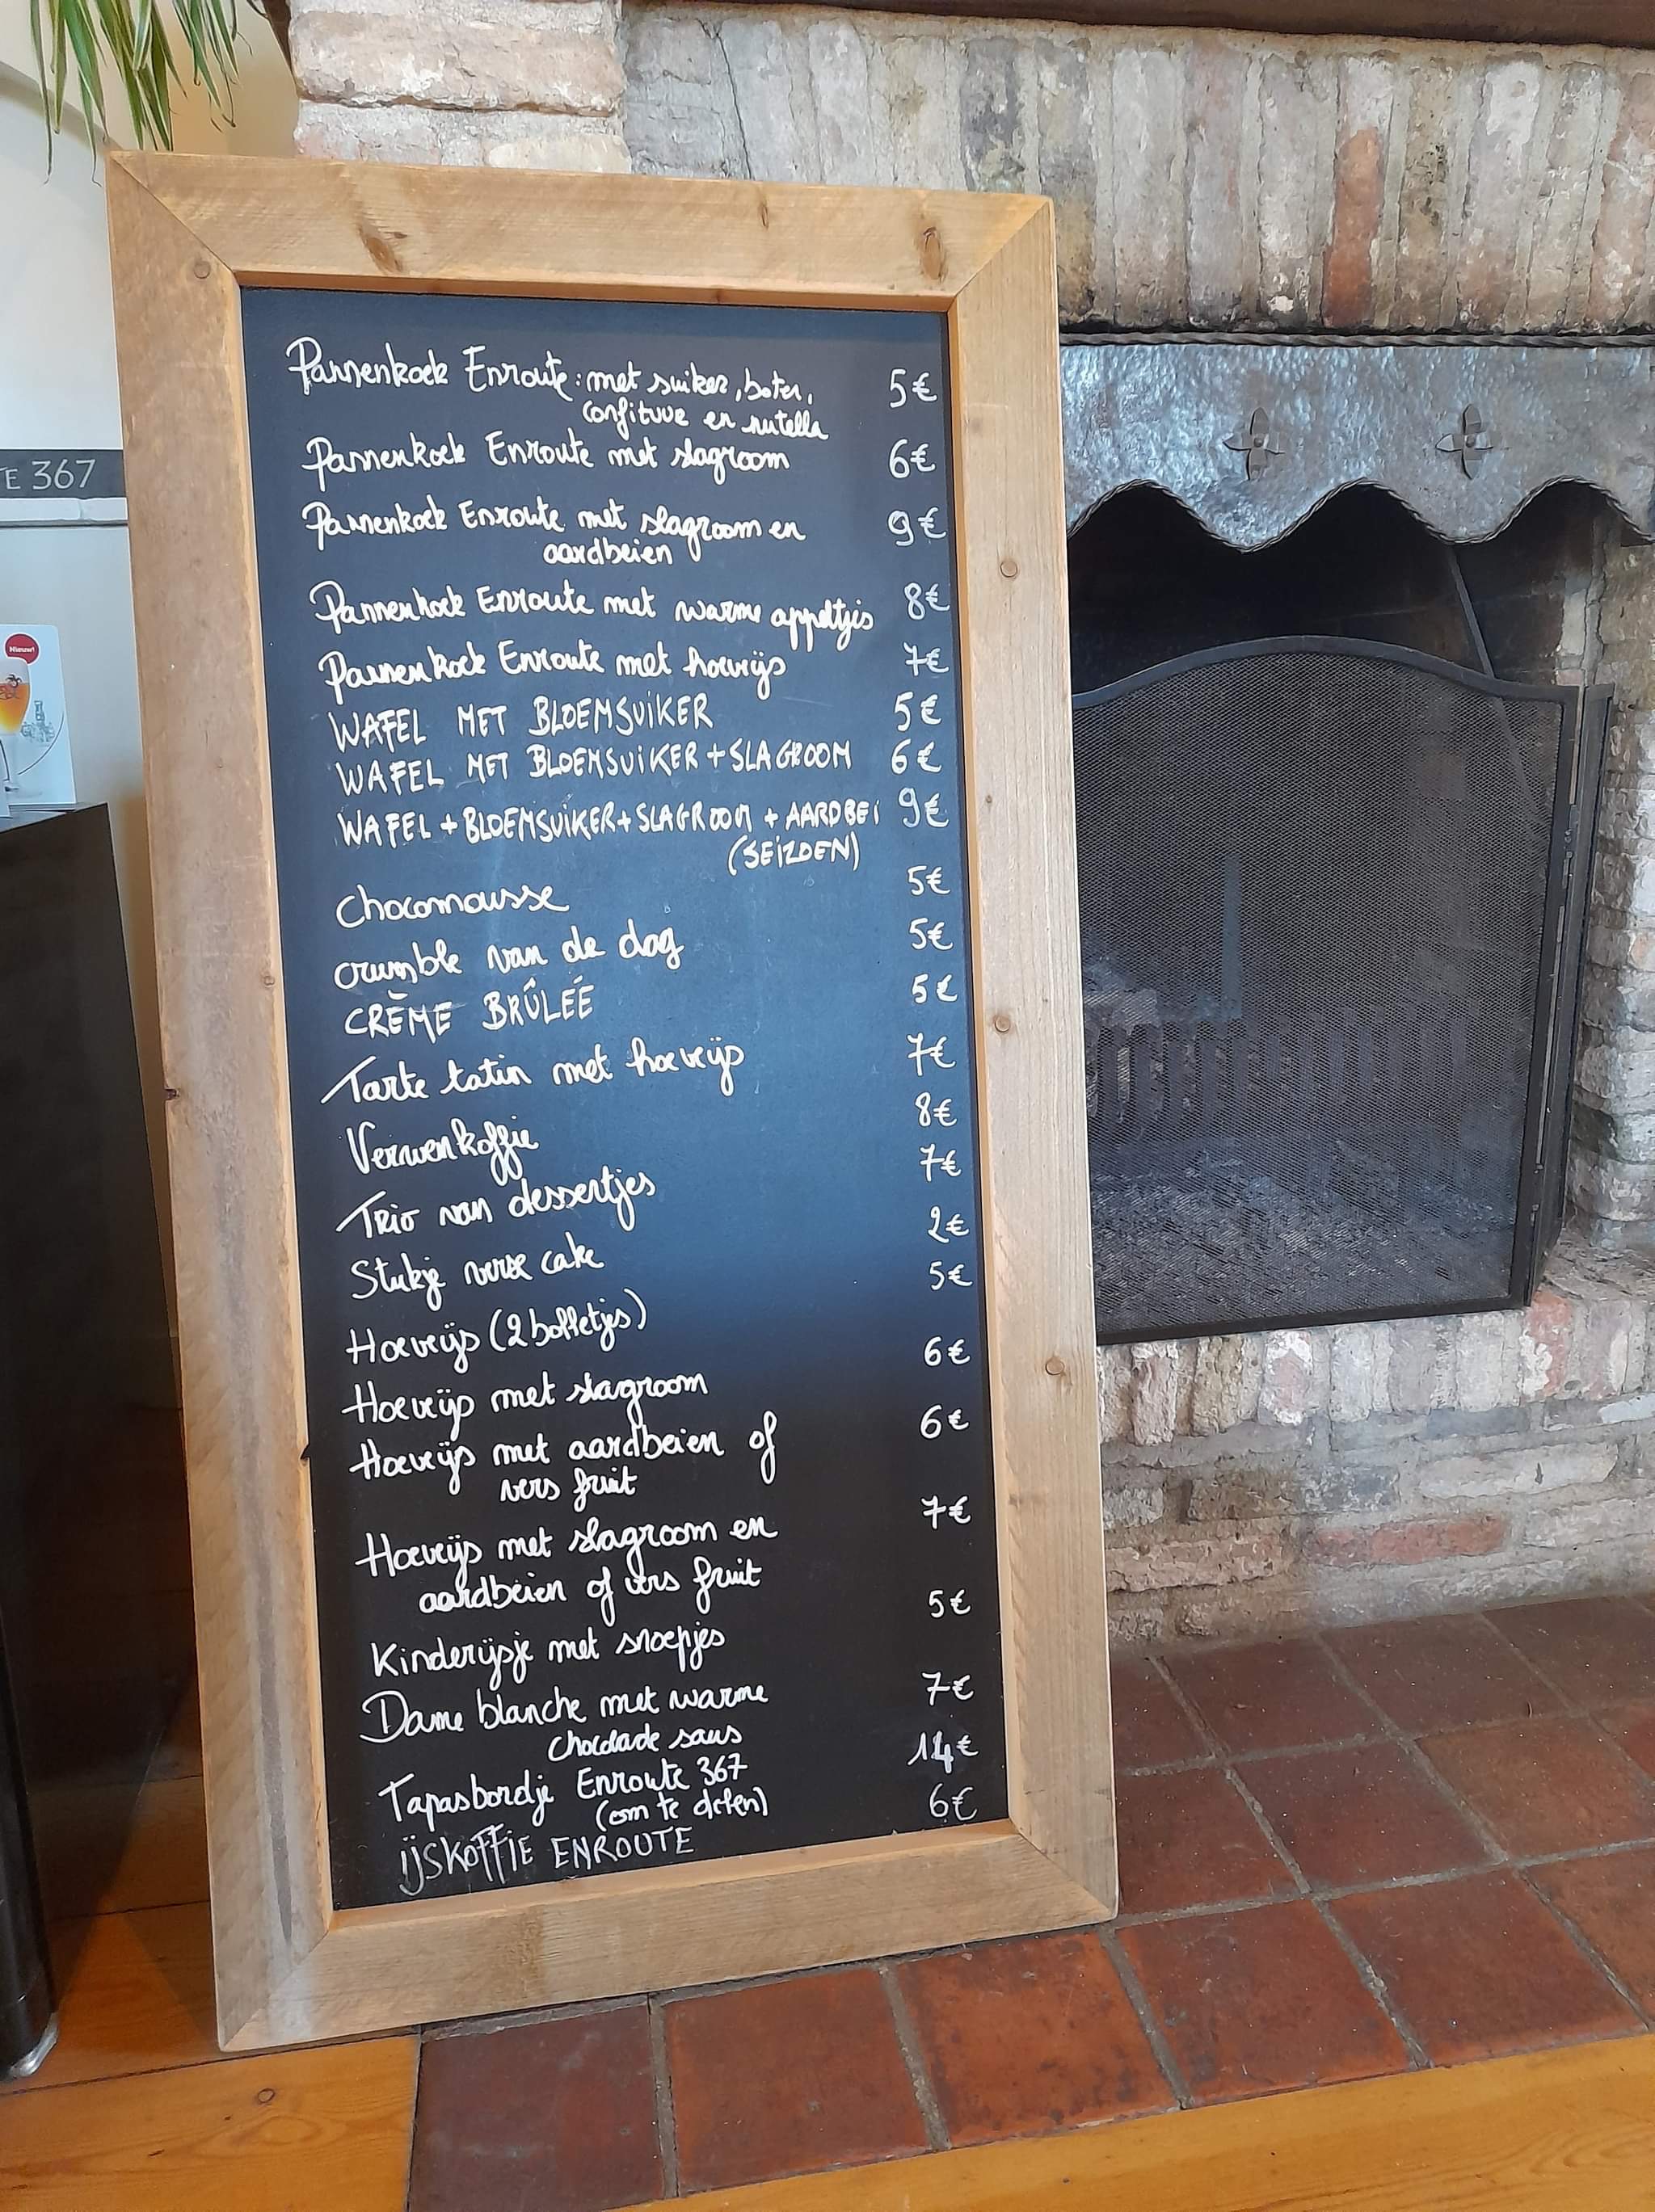 Pannenkoek Enroute: met suiker, boter, 5€
confituur en nutella
Pannenkoek Enroute met slagroom 6€
Pannenkoek Enroute met slagroom en 9€
aardbeien
Pannenkoek Enroute met warme appeltjes 8€
Pannenkoek Enroute met hoeveijs 7€
WAFEL MET BLOEMSUiKER 5€
WAFEL MET BLOEMSUiKER + SLAGROOM 6€
WAFEL + BLOEMSUiKER + SLAGROOM + AARDBEi 9€
(SEiZOEN)
Chocomousse 5€
crumble van de dag 5€
CRÈME BRÛLÉE 5€
Tarte tatin met hoeveijs 7€
Verwenkoffie 8€
Trio van dessertjes 7€
Stukje verse cake 2€
Hoeveijs (2 bolletjes) 5€
Hoeveijs met slagroom 6€
Hoeveijs met aardbeien of 6€
vers fruit
Hoeveijs met slagroom en 7€
aardbeien of vers fruit
Kinderijsje met snoepjes 5€
Dame blanche met warme 7€
chocolade saus
Tapasbordje Enroute 367 14€
(om te delen)
IJSKOFFIE ENROUTE 6€
TE 367
Nieuw!